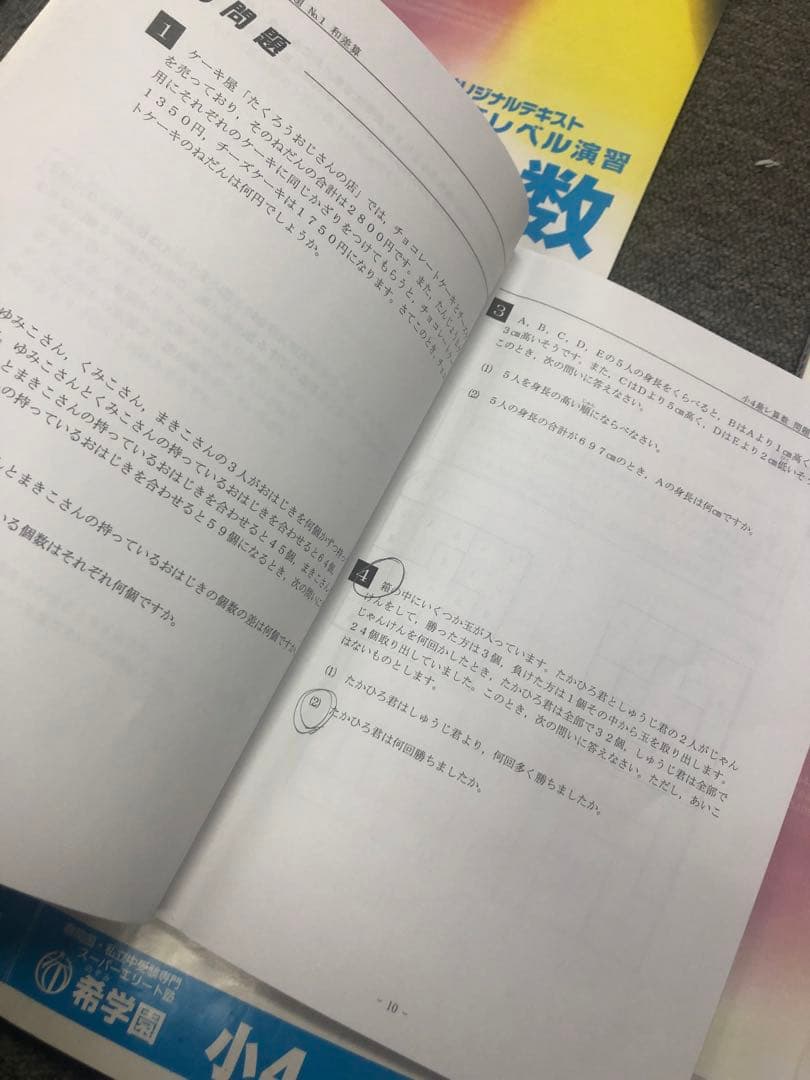 №1 和差算
問題
1
ケーキ屋「たくろうおじさんの店」では,チョコレートケーキとチー
を売っており,そのねだんの合計は2800円です。また,たんじょう
用にそれぞれのケーキに同じかざりをつけてもらうと,チョコレー
1350円,チーズケーキは1750円になります。さてこのとき,チョ
トケーキのねだんは何円でしょうか。
ゆみこさん,くみこさん,まきこさんの3人がおはじきを何個かずつ持っ
ゆみこさんとくみこさんの持っているおはじきを合わせると64個,
とまきこさんの持っているおはじきを合わせると45個,まきこさん
の持っているおはじきを合わせると59個になるとき,次の問いに
んとまきこさんの持っているおはじきの個数の差は何個ですか
いる個数はそれぞれ何個ですか。
リジナルテキスト
レベル演習
数
小4最レ算数 問題
3
A,B,C,D,Eの5人の身長をくらべると,BはAより1㎝高く
3㎝高いそうです。また,CはDより5㎝高く,DはEより2㎝低いそう
このとき,次の問いに答えなさい。
(1) 5人を身長の高い順にならべなさい。
(2) 5人の身長の合計が697㎝のとき,Aの身長は何㎝ですか。
4
箱の中にいくつか玉が入っています。たかひろ君としゅうじ君の2人がじゃん
けんをして,勝った方は3個,負けた方は1個その中から玉を取り出します。
じゃんけんを何回かしたとき,たかひろ君は全部で32個,しゅうじ君は全部で
24個取り出していました。このとき,次の問いに答えなさい。ただし,あいこ
はないものとします。
(1) たかひろ君はしゅうじ君より,何回多く勝ちましたか。
(2) たかひろ君は何回勝ちましたか。
- 10 -
私立中受験専門
スーパーエリート塾
希学園
小4